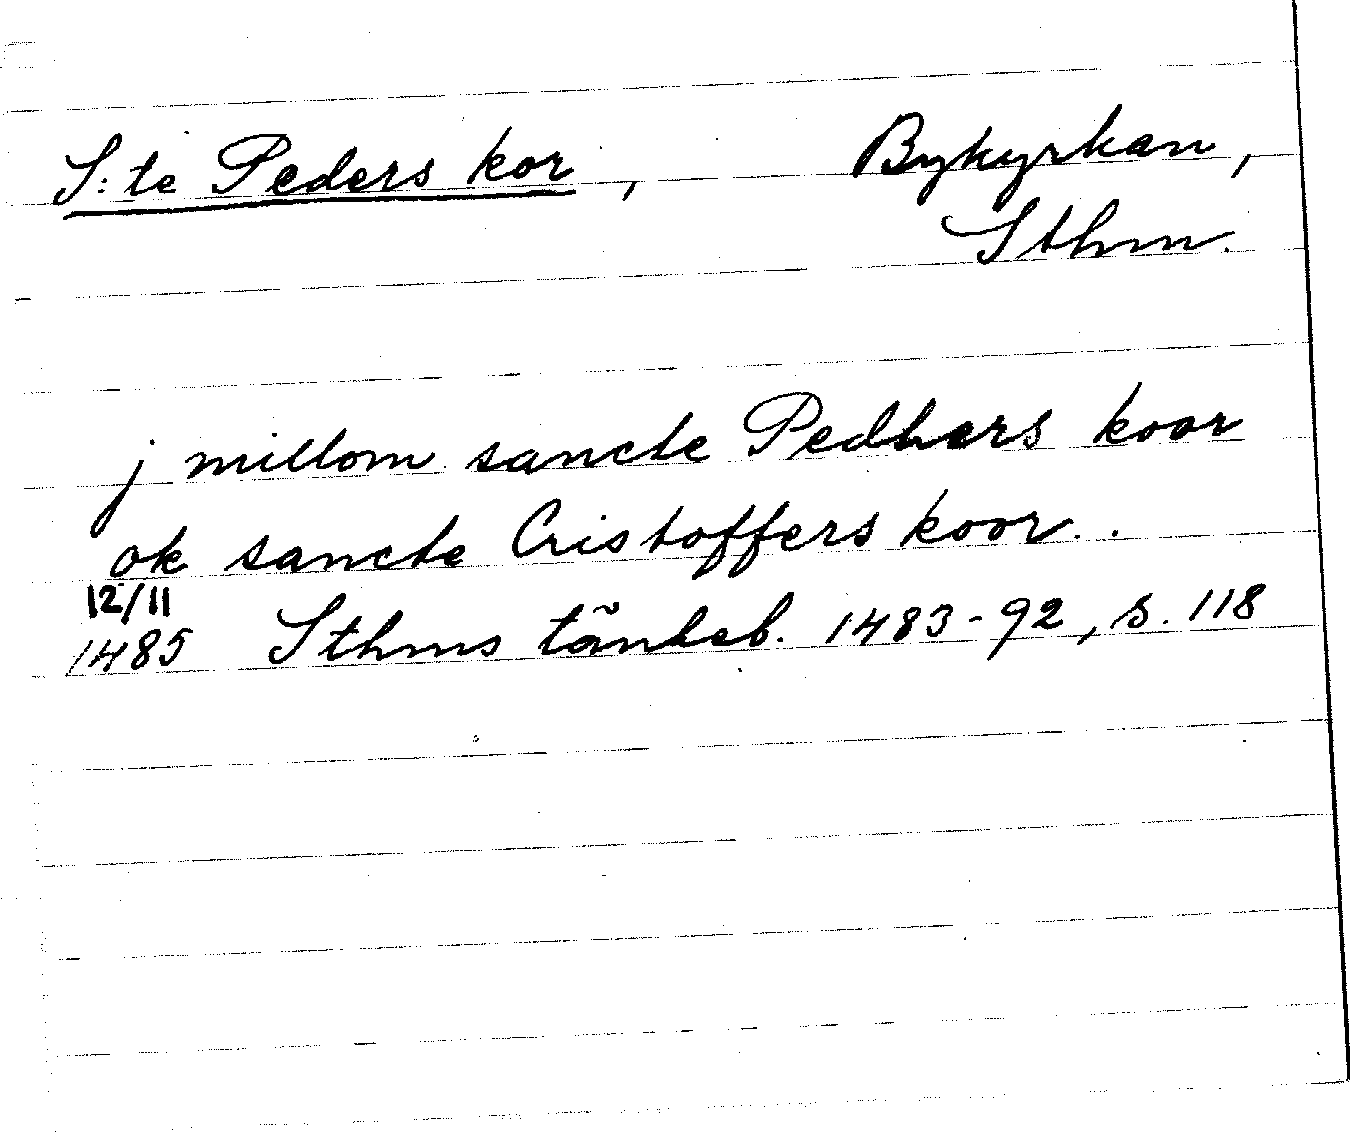 S:te Peders kor, Bykyrkan,
Sthm.
j millom sancte Pedhers koor
ok sancte Cristoffers koor..
12/11
1485 Sthms tänkeb. 1483-92, s. 118